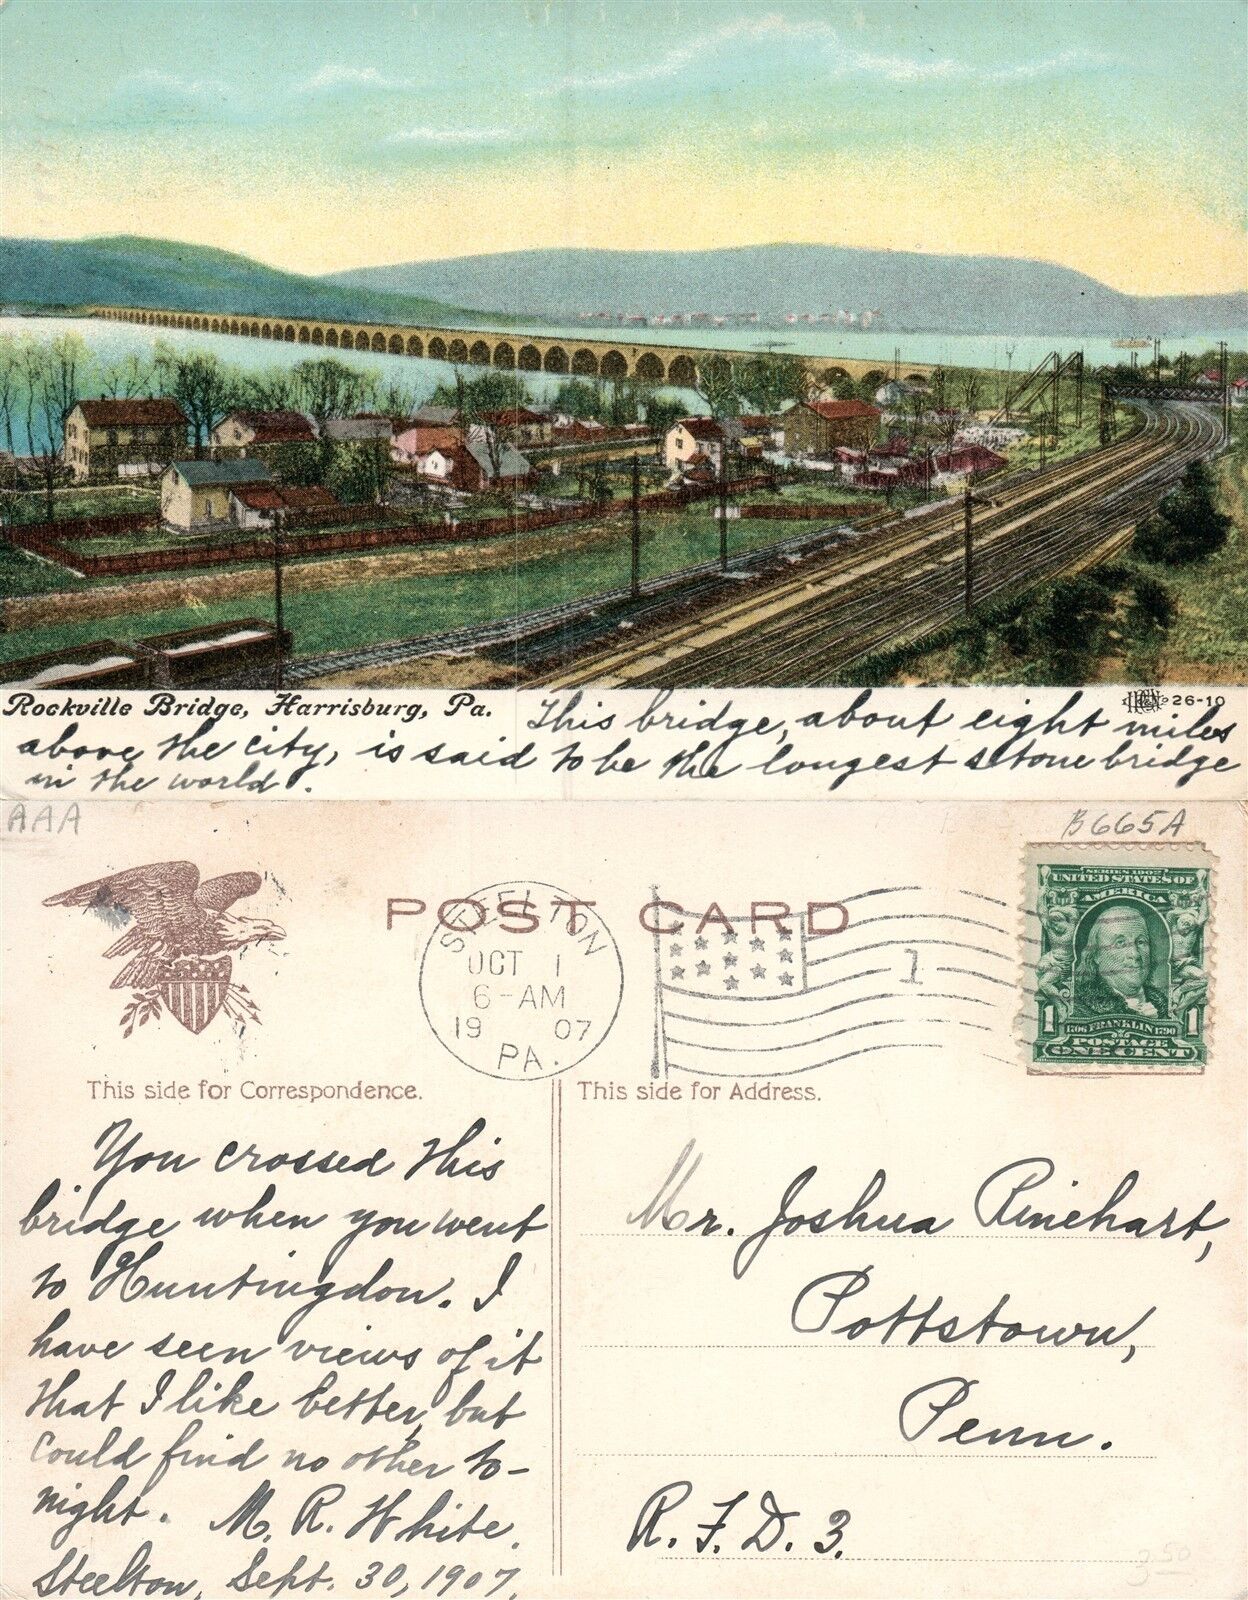 Rockville Bridge, Harrisburg, Pa.
26-10
This bridge, about eight miles
above the city, is said to be the longest stone bridge
in the world.
AAA
B665A
POST CARD
STEELTON
OCT 1
6-AM
19 07
PA.
1
SERIES 1902
UNITED STATES OF
AMERICA
1 1
1706 FRANKLIN 1790
POSTAGE
ONE CENT
This side for Correspondence.
This side for Address.
You crossed this
bridge when you went
to Huntingdon. I
have seen views of it
that I like better, but
could find no other to-
night. M. R. White.
Steelton, Sept. 30, 1907.
Mr. Joshua Rinehart,
Pottstown,
Penn.
R. F. D. 3.
3.50